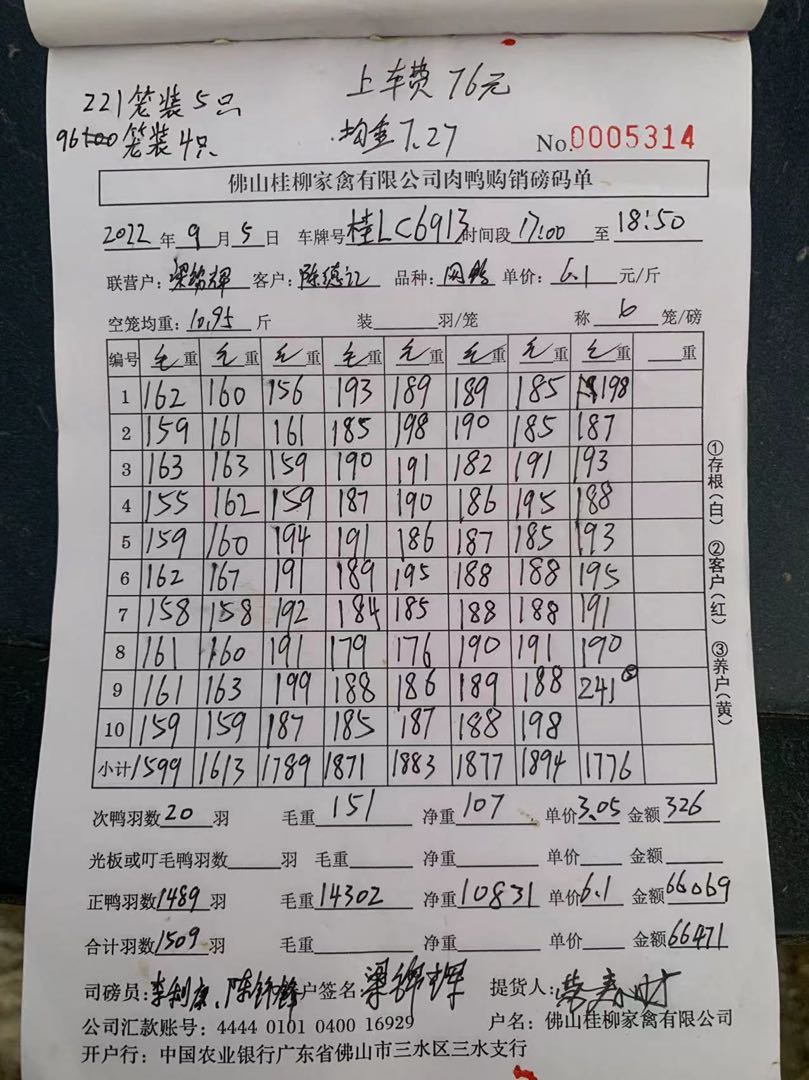 221笼装5只
上车费76元
96笼装4只
均重7.27
No.0005314
佛山桂柳家禽有限公司肉鸭购销磅码单
2022年9月5日 车牌号桂LC6913时间段17:00至18:50
联营户:梁锦辉 客户:陈德记 品种:网鸭 单价:6.1元/斤
空笼均重:10.95斤 装 羽/笼 称6笼/磅
编号 毛重 毛重 毛重 毛重 毛重 毛重 毛重 毛重 重
1 162 160 156 193 189 189 185 198
2 159 161 161 185 198 190 185 187
3 163 163 159 190 191 182 191 193
4 155 162 159 187 190 186 195 188
5 159 160 194 191 186 187 185 193
6 162 167 191 189 195 188 188 195
7 158 158 192 184 185 188 188 191
8 161 160 191 179 176 190 191 190
9 161 163 199 188 186 189 188 241
10 159 159 187 185 187 188 198
小计 1599 1613 1789 1871 1883 1877 1894 1776
次鸭羽数20羽 毛重151 净重107 单价3.05 金额326
光板或叮毛鸭羽数 羽 毛重 净重 单价 金额
正鸭羽数1489羽 毛重14302 净重10831 单价6.1 金额66069
合计羽数1509羽 毛重 净重 单价 金额66471
司磅员:李利康、陈锦锋 户签名:梁锦辉 提货人:
公司汇款账号:4444 0101 0400 16929 户名:佛山桂柳家禽有限公司
开户行:中国农业银行广东省佛山市三水区三水支行
①存根(白) ②客户(红) ③养户(黄)